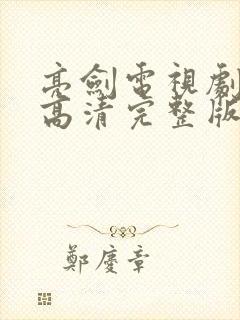 亮劍電視劇
高清完整版
鄭慶章